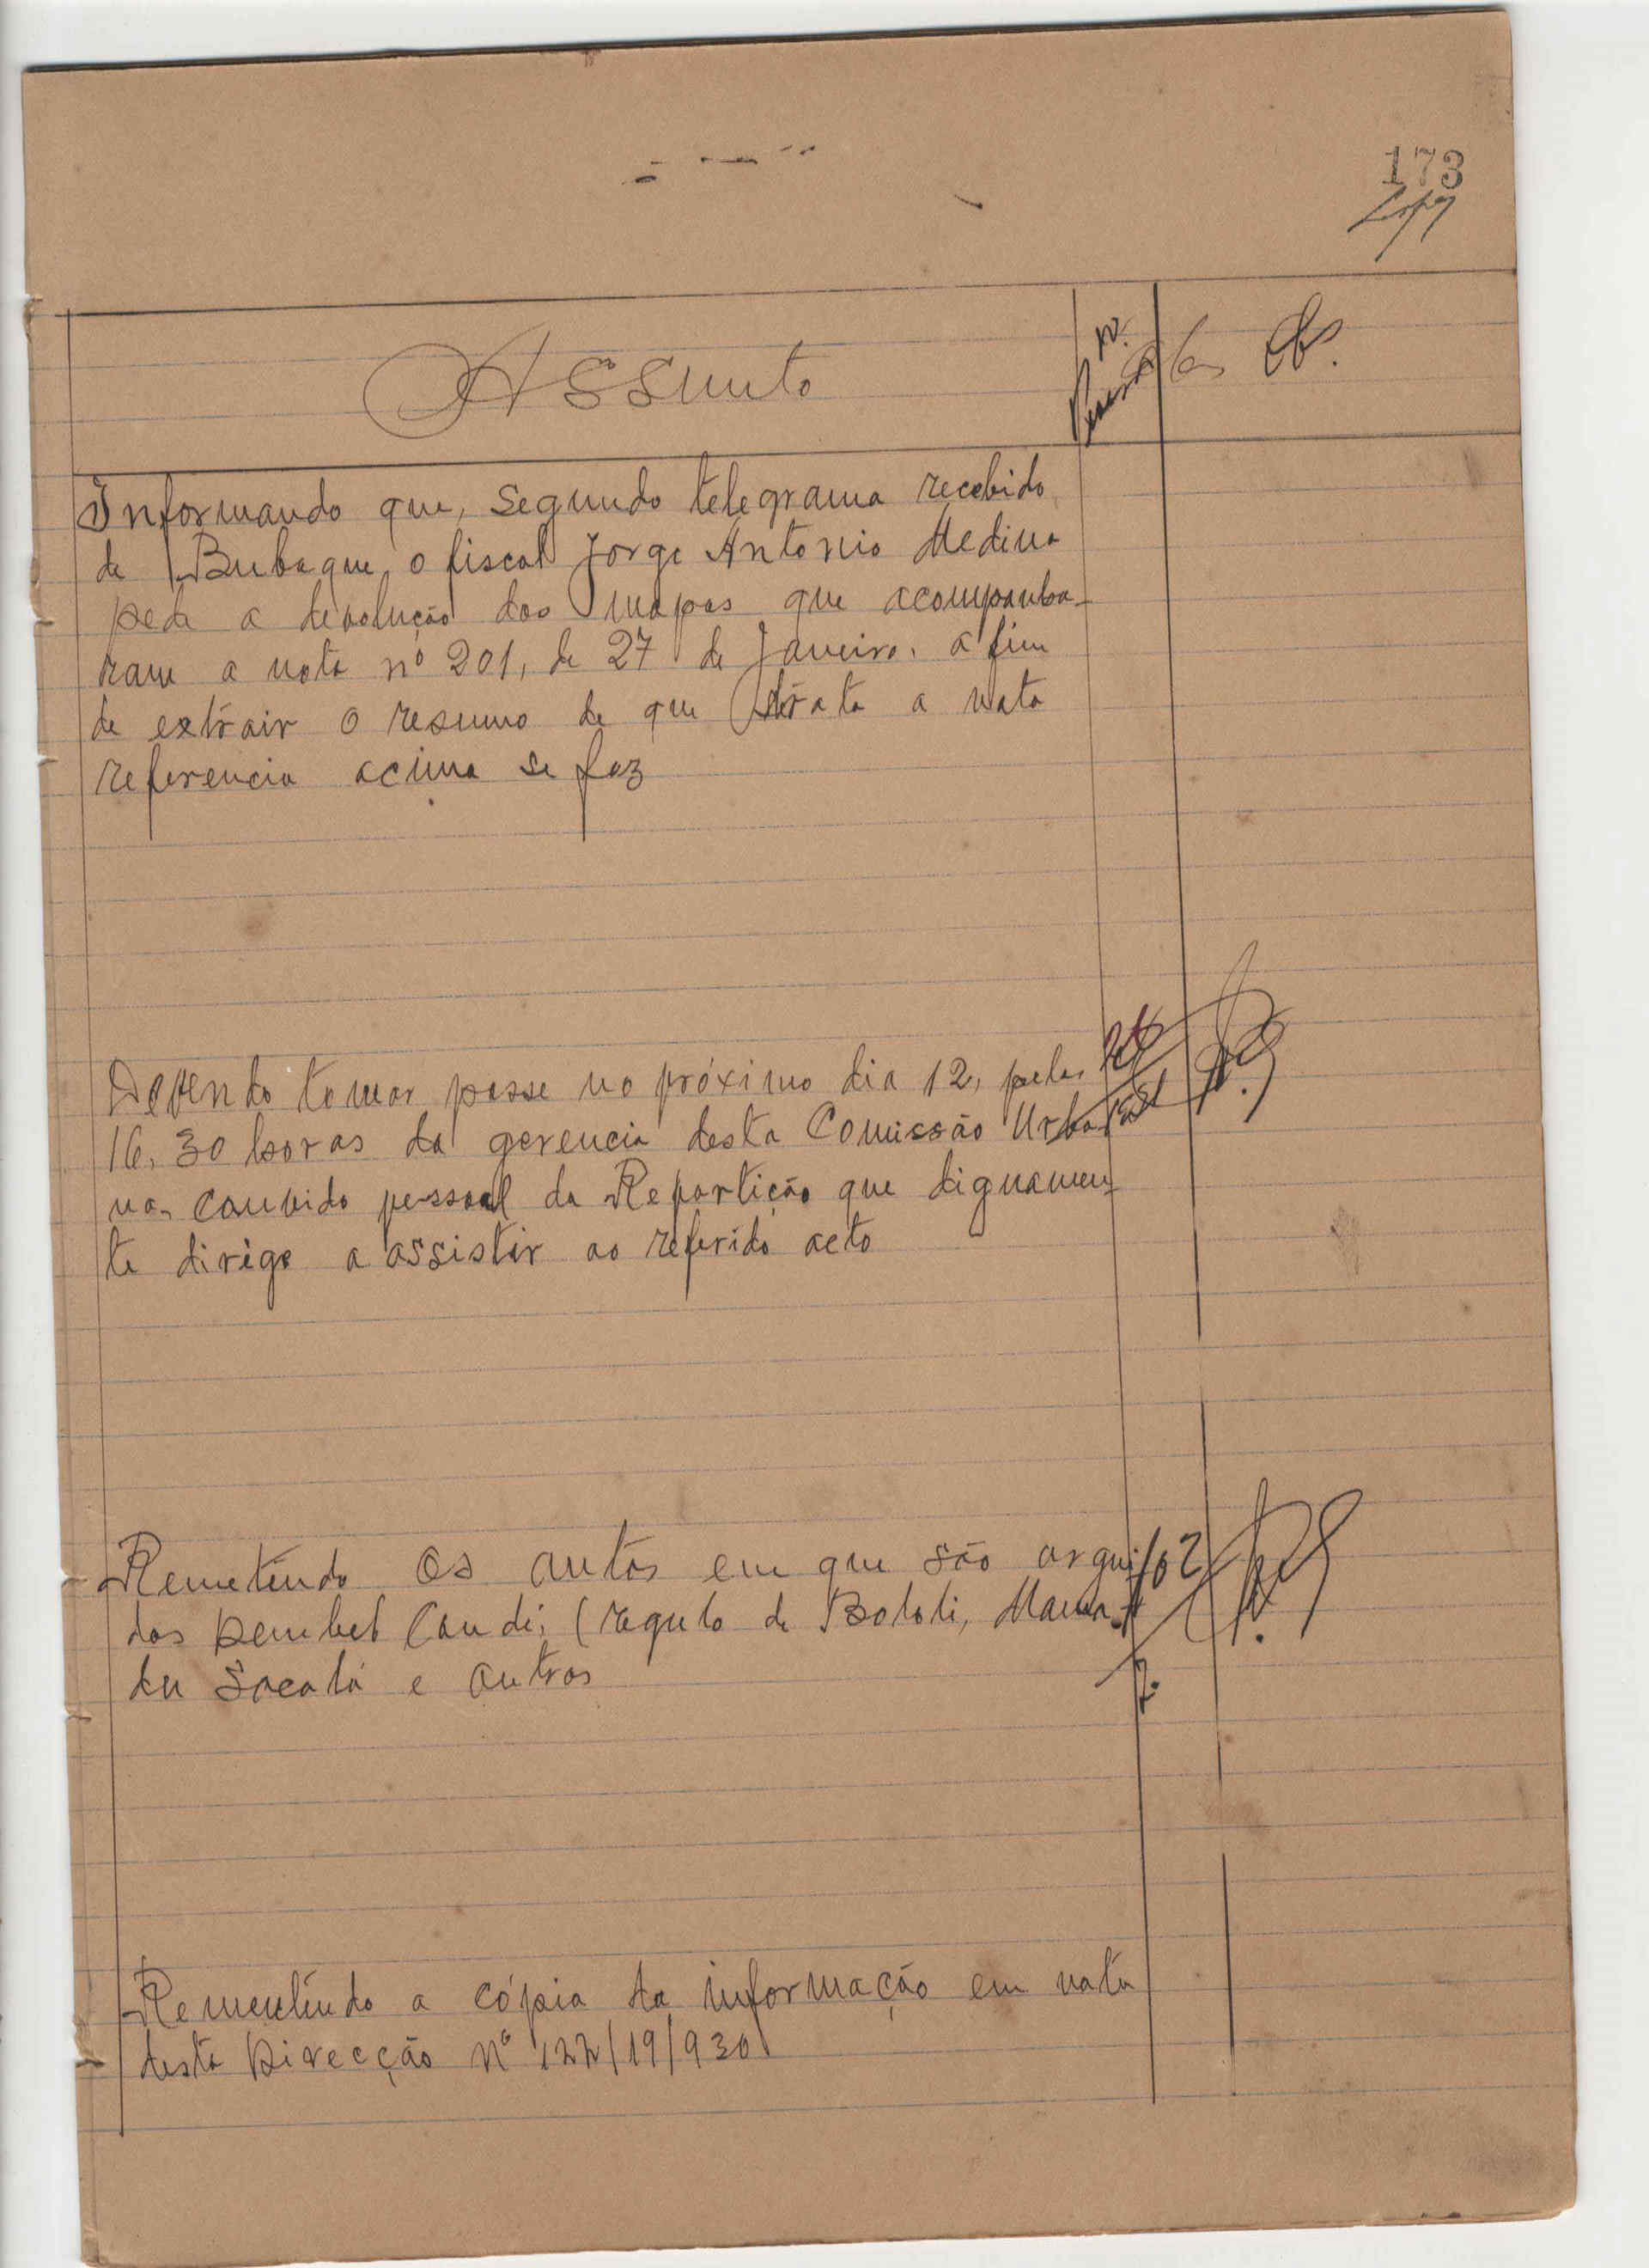 173
Assunto
Obs.
Informando que, segundo telegrama recebido
de Bubaque, o fiscal Jorge Antonio Medina
pede a devolução dos mapas que acompanha-
ram a nota nº 201, de 27 de Janeiro, a fim
de extrair o resumo de que trata a nota
referencia acima se faz
Devendo tomar posse no próximo dia 12, pelas
16,30 horas da gerencia desta Comissão Urba
na, convido pessoal da Repartição que dignamen-
te dirige a assistir ao referido acto
Remetendo os autos em que são argui
102
dos Dembel Candé, (regulo de Bololi, Mama-
du Sacalá e outros
Rementendo a cópia da informação em nota
desta Direcção Nº 122/19/930